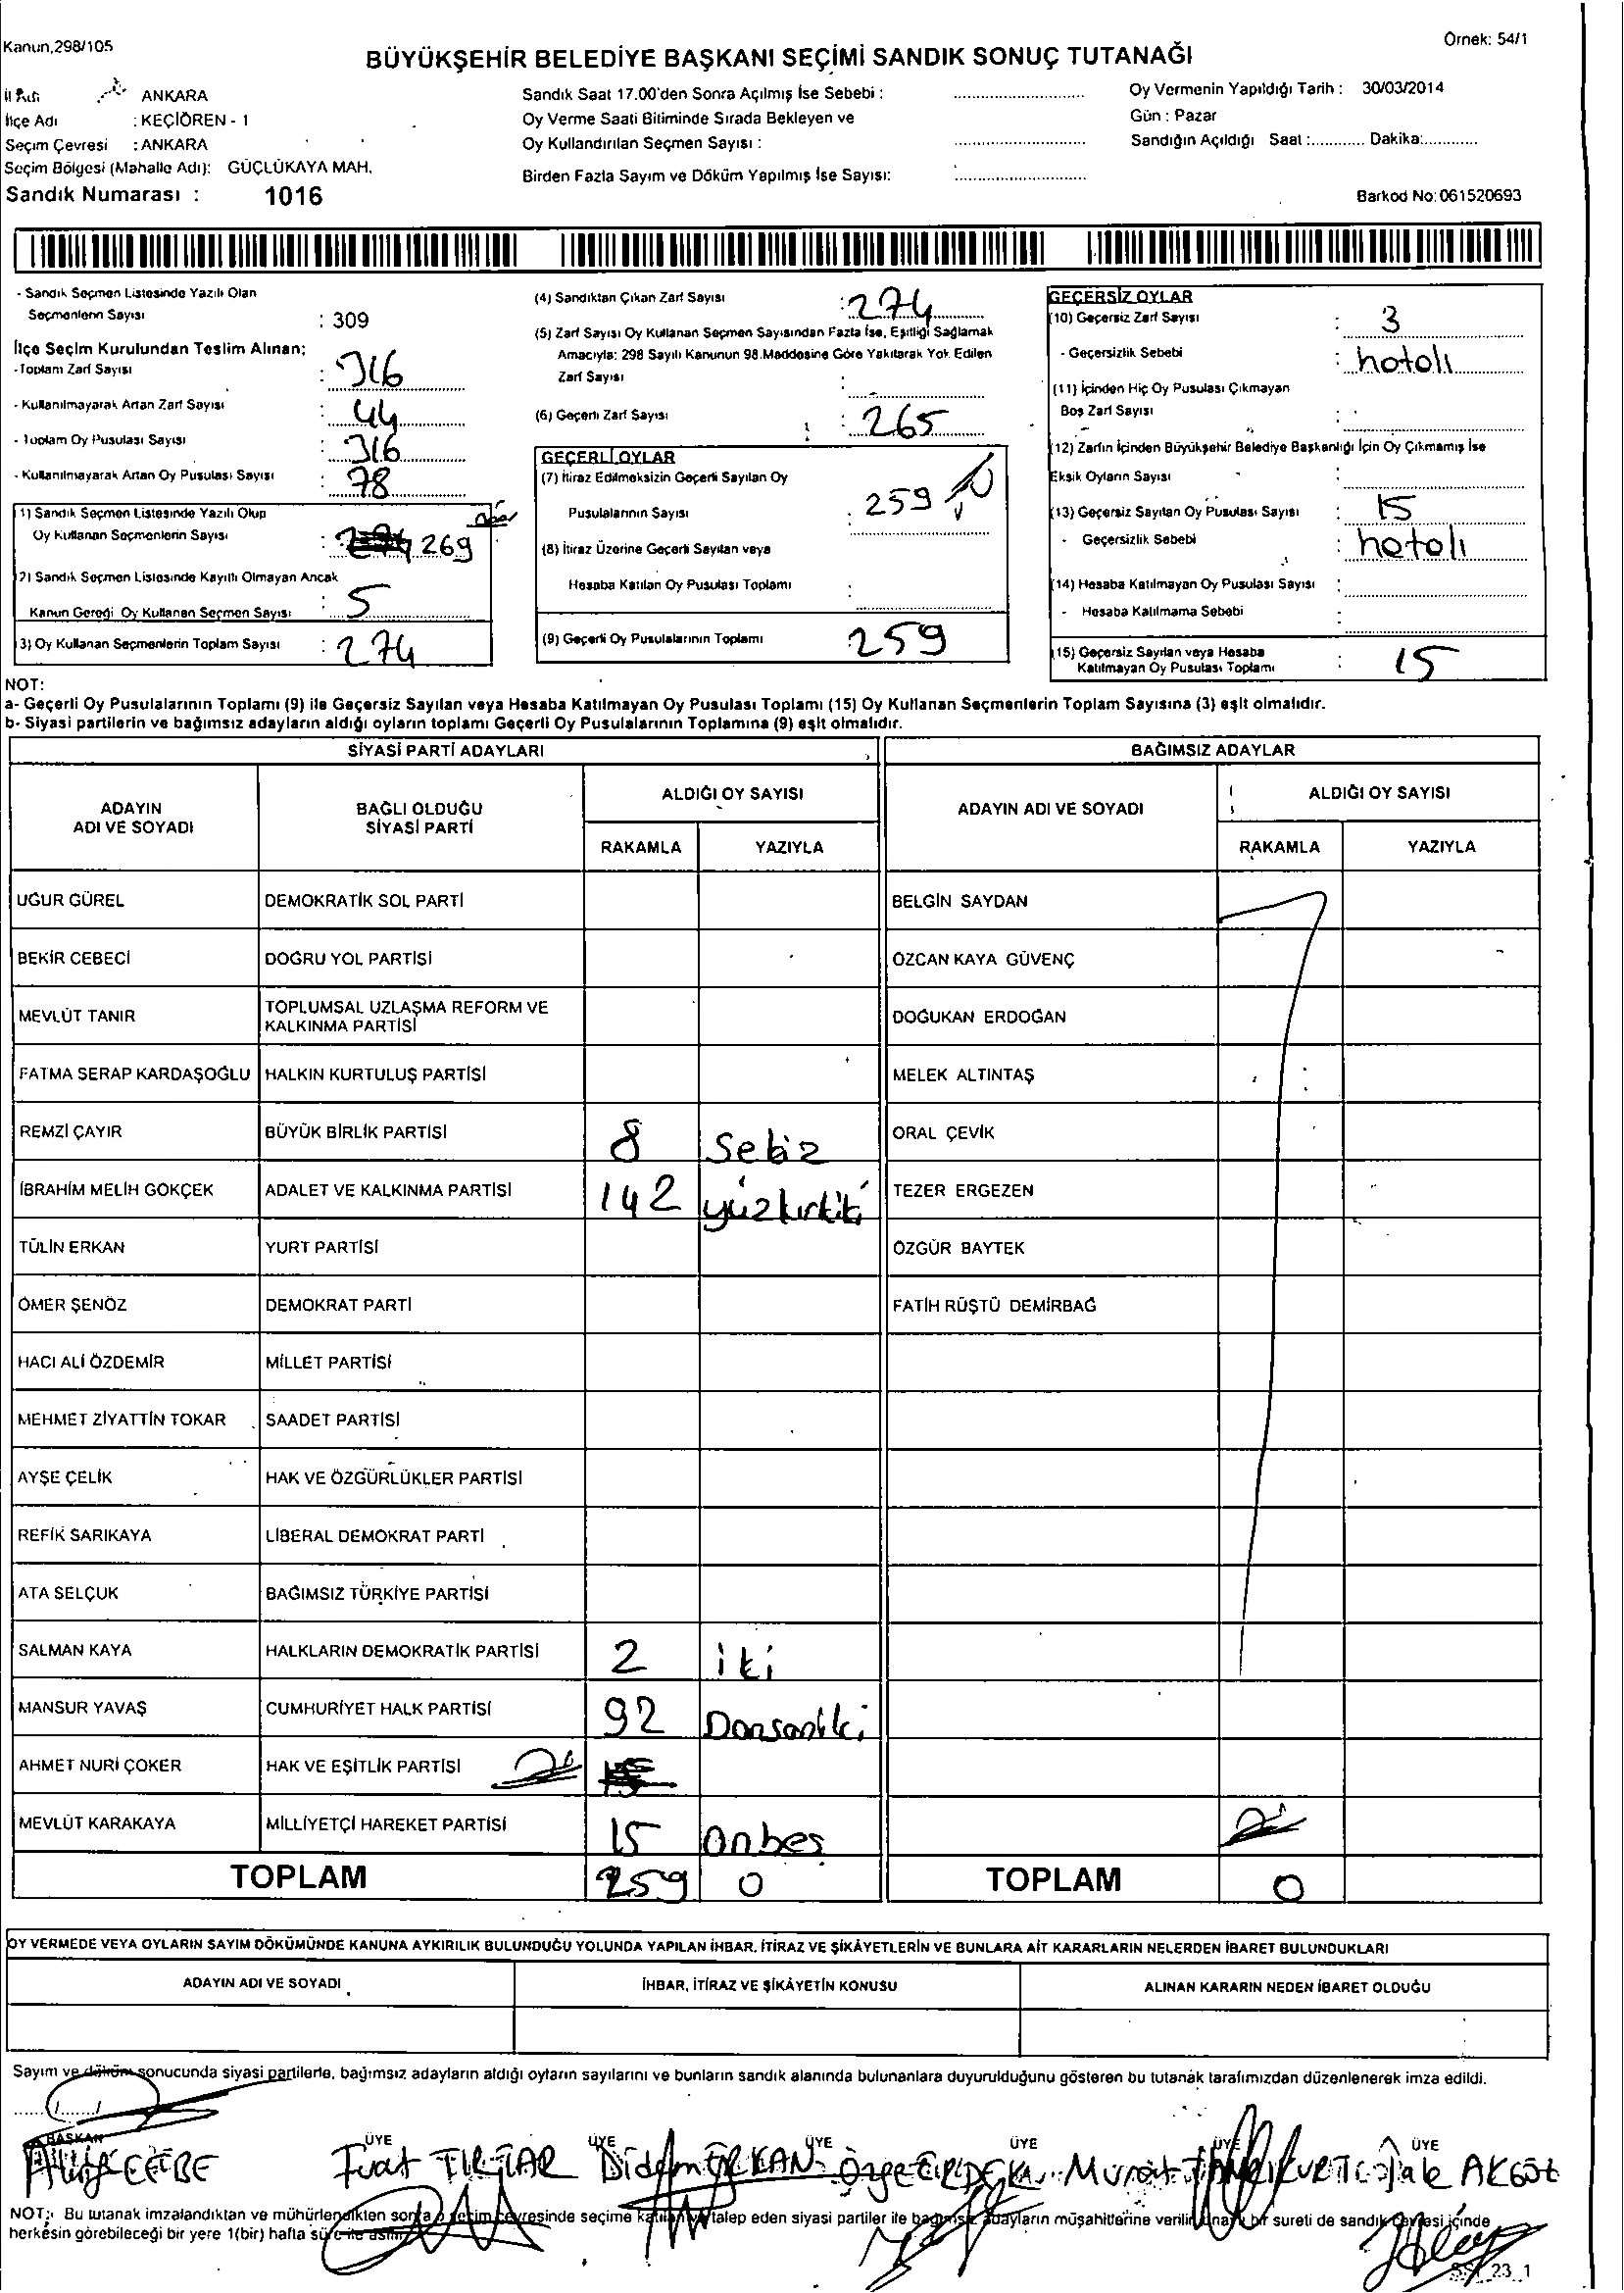 Kanun,298/105
Örnek: 54/1
BÜYÜKŞEHİR BELEDİYE BAŞKANI SEÇİMİ SANDIK SONUÇ TUTANAĞI
İl Adı ANKARA
İlçe Adı : KEÇİÖREN - 1
Seçim Çevresi : ANKARA
Seçim Bölgesi (Mahalle Adı): GÜÇLÜKAYA MAH.
Sandık Numarası : 1016
Sandık Saat 17.00'den Sonra Açılmış İse Sebebi :
Oy Verme Saati Bitiminde Sırada Bekleyen ve
Oy Kullandırılan Seçmen Sayısı :
Birden Fazla Sayım ve Döküm Yapılmış İse Sayısı:
Oy Vermenin Yapıldığı Tarih : 30/03/2014
Gün : Pazar
Sandığın Açıldığı Saat :............ Dakika:............
Barkod No:061520693
- Sandık Seçmen Listesinde Yazılı Olan
Seçmenlerin Sayısı : 309
İlçe Seçim Kurulundan Teslim Alınan;
-Toplam Zarf Sayısı : 316
- Kullanılmayarak Artan Zarf Sayısı : 44
- Toplam Oy Pusulası Sayısı : 316
- Kullanılmayarak Artan Oy Pusulası Sayısı : 78
1) Sandık Seçmen Listesinde Yazılı Olup
Oy Kullanan Seçmenlerin Sayısı : 269
2) Sandık Seçmen Listesinde Kayıtlı Olmayan Ancak
Kanun Gereği Oy Kullanan Seçmen Sayısı : 5
3) Oy Kullanan Seçmenlerin Toplam Sayısı : 274
(4) Sandıktan Çıkan Zarf Sayısı : 274
(5) Zarf Sayısı Oy Kullanan Seçmen Sayısından Fazla İse, Eşitliği Sağlamak
Amacıyla; 298 Sayılı Kanunun 98.Maddesine Göre Yakılarak Yok Edilen
Zarf Sayısı :
(6) Geçerli Zarf Sayısı : 265
GEÇERLİ OYLAR
(7) İtiraz Edilmeksizin Geçerli Sayılan Oy
Pusulalarının Sayısı : 259
(8) İtiraz Üzerine Geçerli Sayılan veya
Hesaba Katılan Oy Pusulası Toplamı :
(9) Geçerli Oy Pusulalarının Toplamı : 259
GEÇERSİZ OYLAR
(10) Geçersiz Zarf Sayısı : 3
- Geçersizlik Sebebi : hatalı
(11) İçinden Hiç Oy Pusulası Çıkmayan
Boş Zarf Sayısı :
(12) Zarfın İçinden Büyükşehir Belediye Başkanlığı İçin Oy Çıkmamış İse
Eksik Oyların Sayısı :
(13) Geçersiz Sayılan Oy Pusulası Sayısı : 15
- Geçersizlik Sebebi : hatalı
(14) Hesaba Katılmayan Oy Pusulası Sayısı :
- Hesaba Katılmama Sebebi :
(15) Geçersiz Sayılan veya Hesaba
Katılmayan Oy Pusulası Toplamı : 15
NOT:
a- Geçerli Oy Pusulalarının Toplamı (9) ile Geçersiz Sayılan veya Hesaba Katılmayan Oy Pusulası Toplamı (15) Oy Kullanan Seçmenlerin Toplam Sayısına (3) eşit olmalıdır.
b- Siyasi partilerin ve bağımsız adayların aldığı oyların toplamı Geçerli Oy Pusulalarının Toplamına (9) eşit olmalıdır.
SİYASİ PARTİ ADAYLARI BAĞIMSIZ ADAYLAR
ADAYIN ADI VE SOYADI BAĞLI OLDUĞU SİYASİ PARTİ ALDIĞI OY SAYISI ADAYIN ADI VE SOYADI ALDIĞI OY SAYISI
RAKAMLA YAZIYLA RAKAMLA YAZIYLA
UĞUR GÜREL DEMOKRATİK SOL PARTİ BELGİN SAYDAN
BEKİR CEBECİ DOĞRU YOL PARTİSİ ÖZCAN KAYA GÜVENÇ
MEVLÜT TANIR TOPLUMSAL UZLAŞMA REFORM VE KALKINMA PARTİSİ DOĞUKAN ERDOĞAN
FATMA SERAP KARDAŞOĞLU HALKIN KURTULUŞ PARTİSİ MELEK ALTINTAŞ
REMZİ ÇAYIR BÜYÜK BİRLİK PARTİSİ 8 Sekiz ORAL ÇEVİK
İBRAHİM MELİH GÖKÇEK ADALET VE KALKINMA PARTİSİ 142 yüzkırkiki TEZER ERGEZEN
TÜLİN ERKAN YURT PARTİSİ ÖZGÜR BAYTEK
ÖMER ŞENÖZ DEMOKRAT PARTİ FATİH RÜŞTÜ DEMİRBAĞ
HACI ALİ ÖZDEMİR MİLLET PARTİSİ
MEHMET ZİYATTİN TOKAR SAADET PARTİSİ
AYŞE ÇELİK HAK VE ÖZGÜRLÜKLER PARTİSİ
REFİK SARIKAYA LİBERAL DEMOKRAT PARTİ
ATA SELÇUK BAĞIMSIZ TÜRKİYE PARTİSİ
SALMAN KAYA HALKLARIN DEMOKRATİK PARTİSİ 2 iki
MANSUR YAVAŞ CUMHURİYET HALK PARTİSİ 92 Doksaniki
AHMET NURİ ÇOKER HAK VE EŞİTLİK PARTİSİ
MEVLÜT KARAKAYA MİLLİYETÇİ HAREKET PARTİSİ 15 Onbeş
TOPLAM 259 0 TOPLAM 0
OY VERMEDE VEYA OYLARIN SAYIM DÖKÜMÜNDE KANUNA AYKIRILIK BULUNDUĞU YOLUNDA YAPILAN İHBAR, İTİRAZ VE ŞİKÂYETLERİN VE BUNLARA AİT KARARLARIN NELERDEN İBARET BULUNDUKLARI
ADAYIN ADI VE SOYADI İHBAR, İTİRAZ VE ŞİKÂYETİN KONUSU ALINAN KARARIN NEDEN İBARET OLDUĞU
Sayım ve döküm sonucunda siyasi partilerle, bağımsız adayların aldığı oyların sayılarını ve bunların sandık alanında bulunanlara duyurulduğunu gösteren bu tutanak tarafımızdan düzenlenerek imza edildi.
BAŞKAN ÜYE ÜYE ÜYE ÜYE ÜYE ÜYE
Fuat Didem ERKAN Özge Murat TANRIKURT Jale AKGÜL
NOT: Bu tutanak imzalandıktan ve mühürlendikten sonra o seçim çevresinde seçime katılan ve talep eden siyasi partiler ile bağımsız adayların müşahitlerine verilir, onaylı bir sureti de sandık çevresi içinde
herkesin görebileceği bir yere 1(bir) hafta süre ile asılır.
SSt_23_1